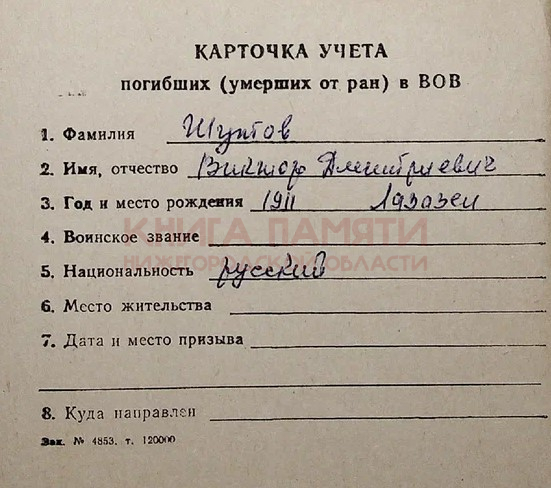 КАРТОЧКА УЧЕТА
погибших (умерших от ран) в ВОВ
1. Фамилия Шутов
2. Имя, отчество Виктор Дмитриевич
3. Год и место рождения 1911 Лязазеи
КНИГА ПАМЯТИ
4. Воинское звание
НИЖЕГОРОДСКОЙ ОБЛАСТИ
5. Национальность русский
6. Место жительства
7. Дата и место призыва
8. Куда направлен
Зак. № 4853. т. 120000